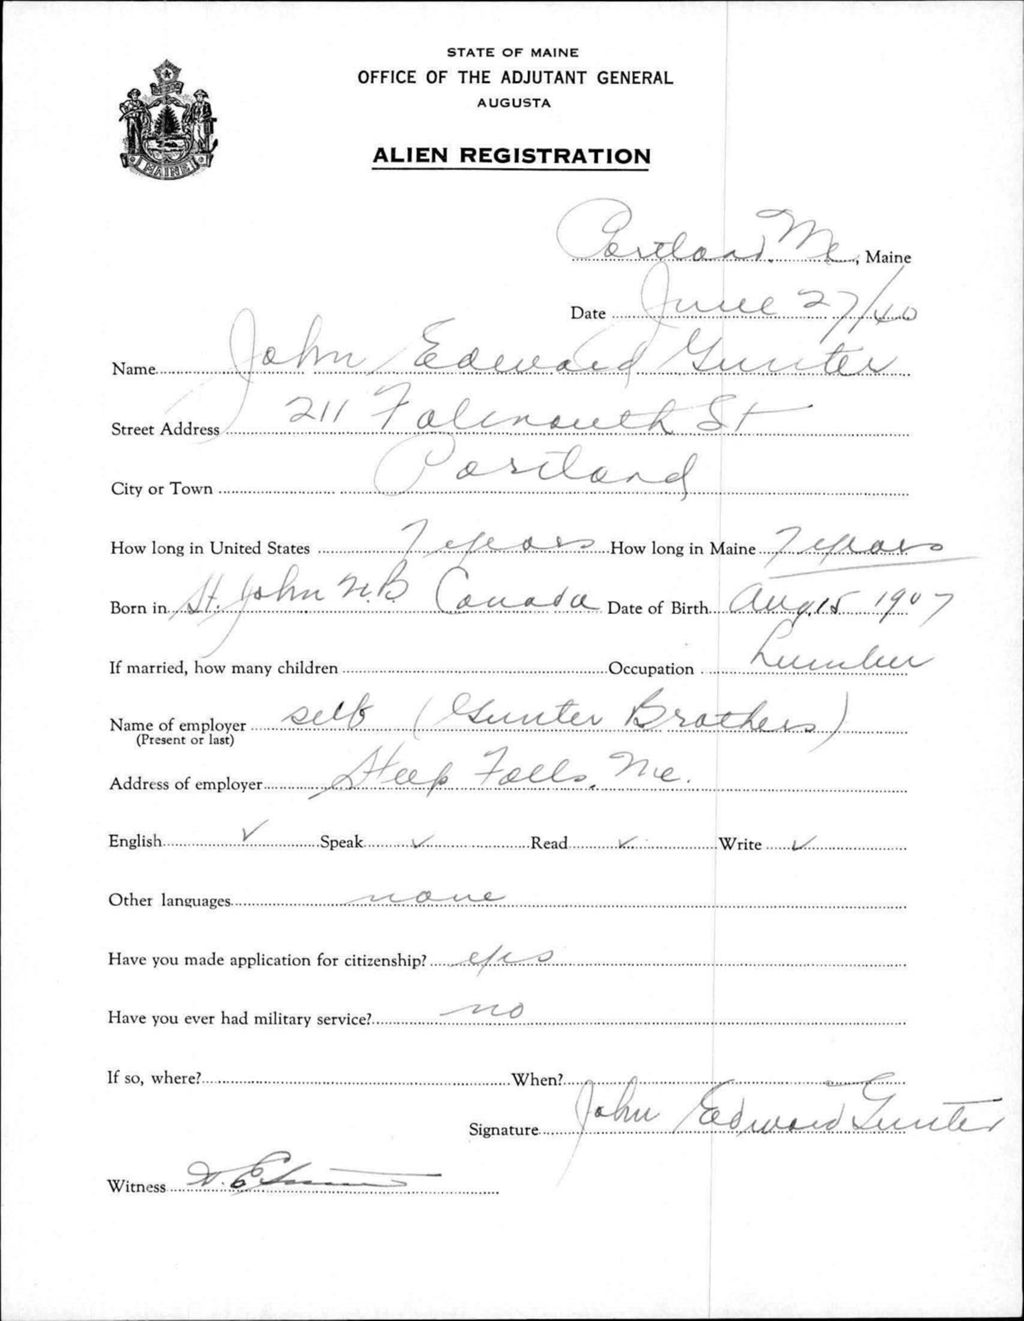 STATE OF MAINE
OFFICE OF THE ADJUTANT GENERAL
AUGUSTA
ALIEN REGISTRATION
MAINE
Portland. Me, Maine
Date June 27/40
Name John Edward Gunter
Street Address 211 Falmouth St
City or Town Portland
How long in United States 7 years How long in Maine 7 years
Born in St. John N.B Canada Date of Birth Aug 15 1907
If married, how many children Occupation Lumber
Name of employer self (Gunter Brothers)
(Present or last)
Address of employer Steep Falls, Me.
English ✓ Speak ✓ Read ✓ Write ✓
Other languages none
Have you made application for citizenship? yes
Have you ever had military service? no
If so, where? When?
Signature John Edward Gunter
Witness